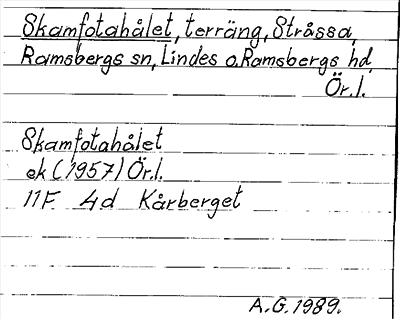 Skamfotahålet, terräng, Stråssa,
Ramsbergs sn, Lindes o. Ramsbergs hd,
Ör.l.
Skamfotahålet
ek (1957) Ör.l.
11F 4d Kårberget
A.G. 1989.